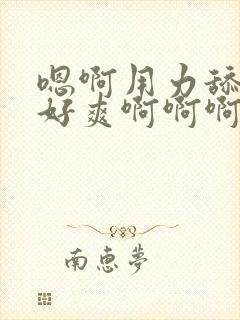 嗯啊用力舔
好爽啊啊啊
南惠梦